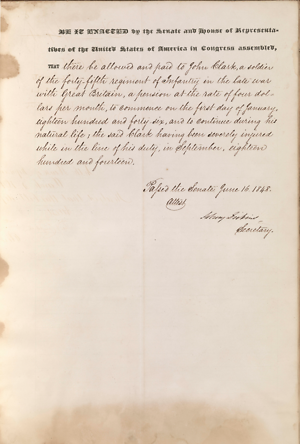 BE IT ENACTED by the Senate and House of Representa-
tives of the United States of America in Congress assembled,
THAT there be allowed and paid to John Clark, a soldier
of the forty-fifth regiment of Infantry in the late war
with Great Britain, a pension at the rate of four dol-
lars per month, to commence on the first day of January,
eighteen hundred and forty six, and to continue during his
natural life; the said Clark having been severely injured
while in the line of his duty, in September, eighteen
hundred and fourteen.
Passed the Senate June 16. 1848.
Attest,
Asbury Dickins
Secretary.